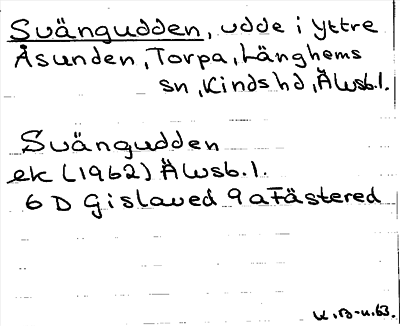 Svängudden, udde i Yttre
Åsunden, Torpa, Länghems
sn, Kinds hd, Älvsb. l.
Svängudden
ek (1962) Älvsb. l.
6 D Gislaved 9a Fästered